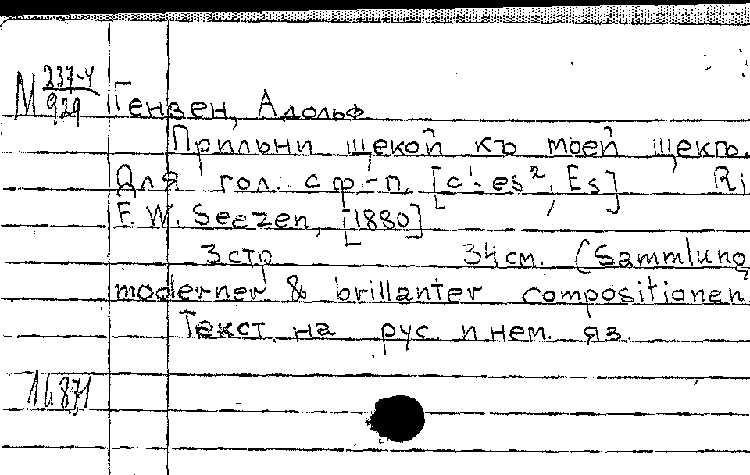 М 237-4/929 Гензен, Адольф
Прильни щекой къ моей щекѣ.
Для гол. с ф-п. [c'-es², Es] Ri
F. W. Seezen, [1880]
3 стр 34 см. (Sammlung
moderner & brillanter compositionen
Текст на рус. и нем. яз.
16871